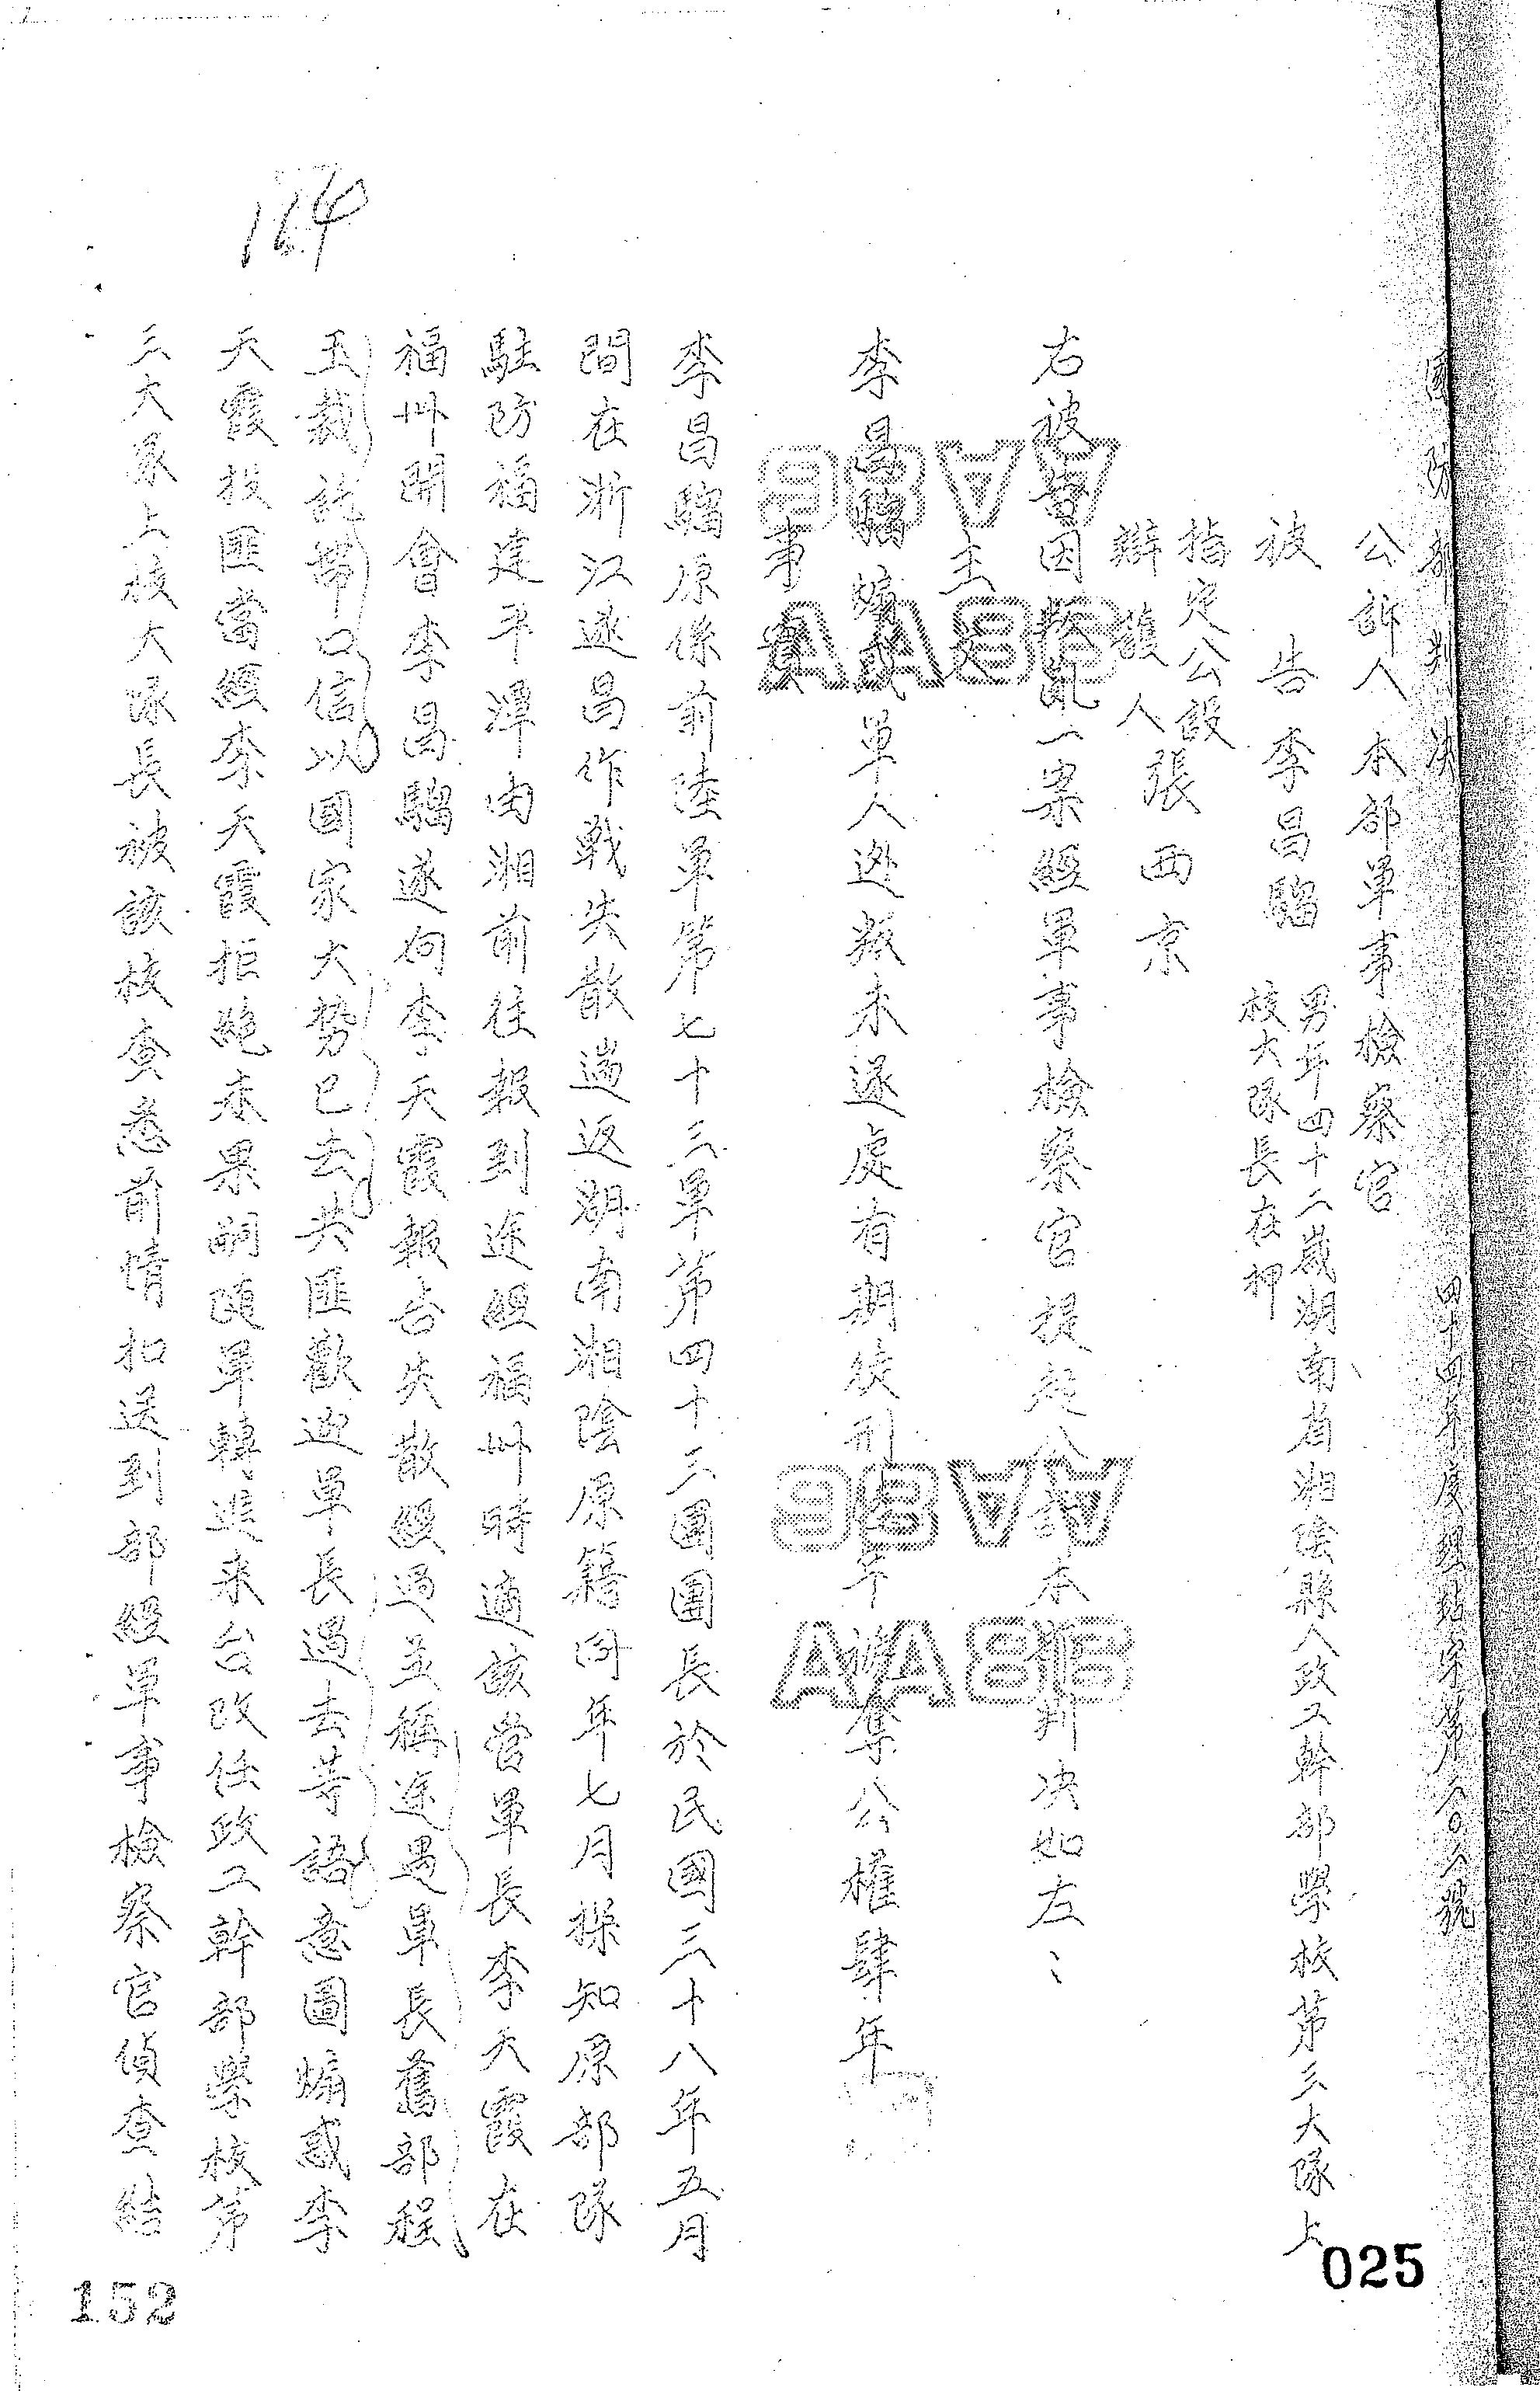 國防部判決 四十四年度經玷字第六〇六號
公訴人本部軍事檢察官
被告李昌騮 男年四十二歲湖南省湘陰縣人政工幹部學校第三大隊上
校大隊長在押
指定公設
辯護人張西京
右被告因叛亂一案經軍事檢察官提起公訴本部判決如左：
主文
李昌騮煽惑軍人逃叛未遂處有期徒刑年褫奪公權肆年
事實
李昌騮原係前陸軍第七十三軍第四十三團團長於民國三十八年五月
間在浙江遂昌作戰失散遄返湖南湘陰原籍同年七月探知原部隊
駐防福建平潭由湘前往報到途經福州時適該當軍長李天霞在
福州開會李昌騮遂向李天霞報告失散經過並稱途遇軍長舊部程
玉裁託帶口信以國家大勢已去共匪歡迎軍長過去等語意圖煽惑李
天霞投匪當經李天霞拒絕未果嗣隨軍轉進來台改任政工幹部學校第
三大隊上校大隊長被該校查悉前情扣送到部經軍事檢察官偵查結
164
AA86
AA86
AA86
AA86
152
025